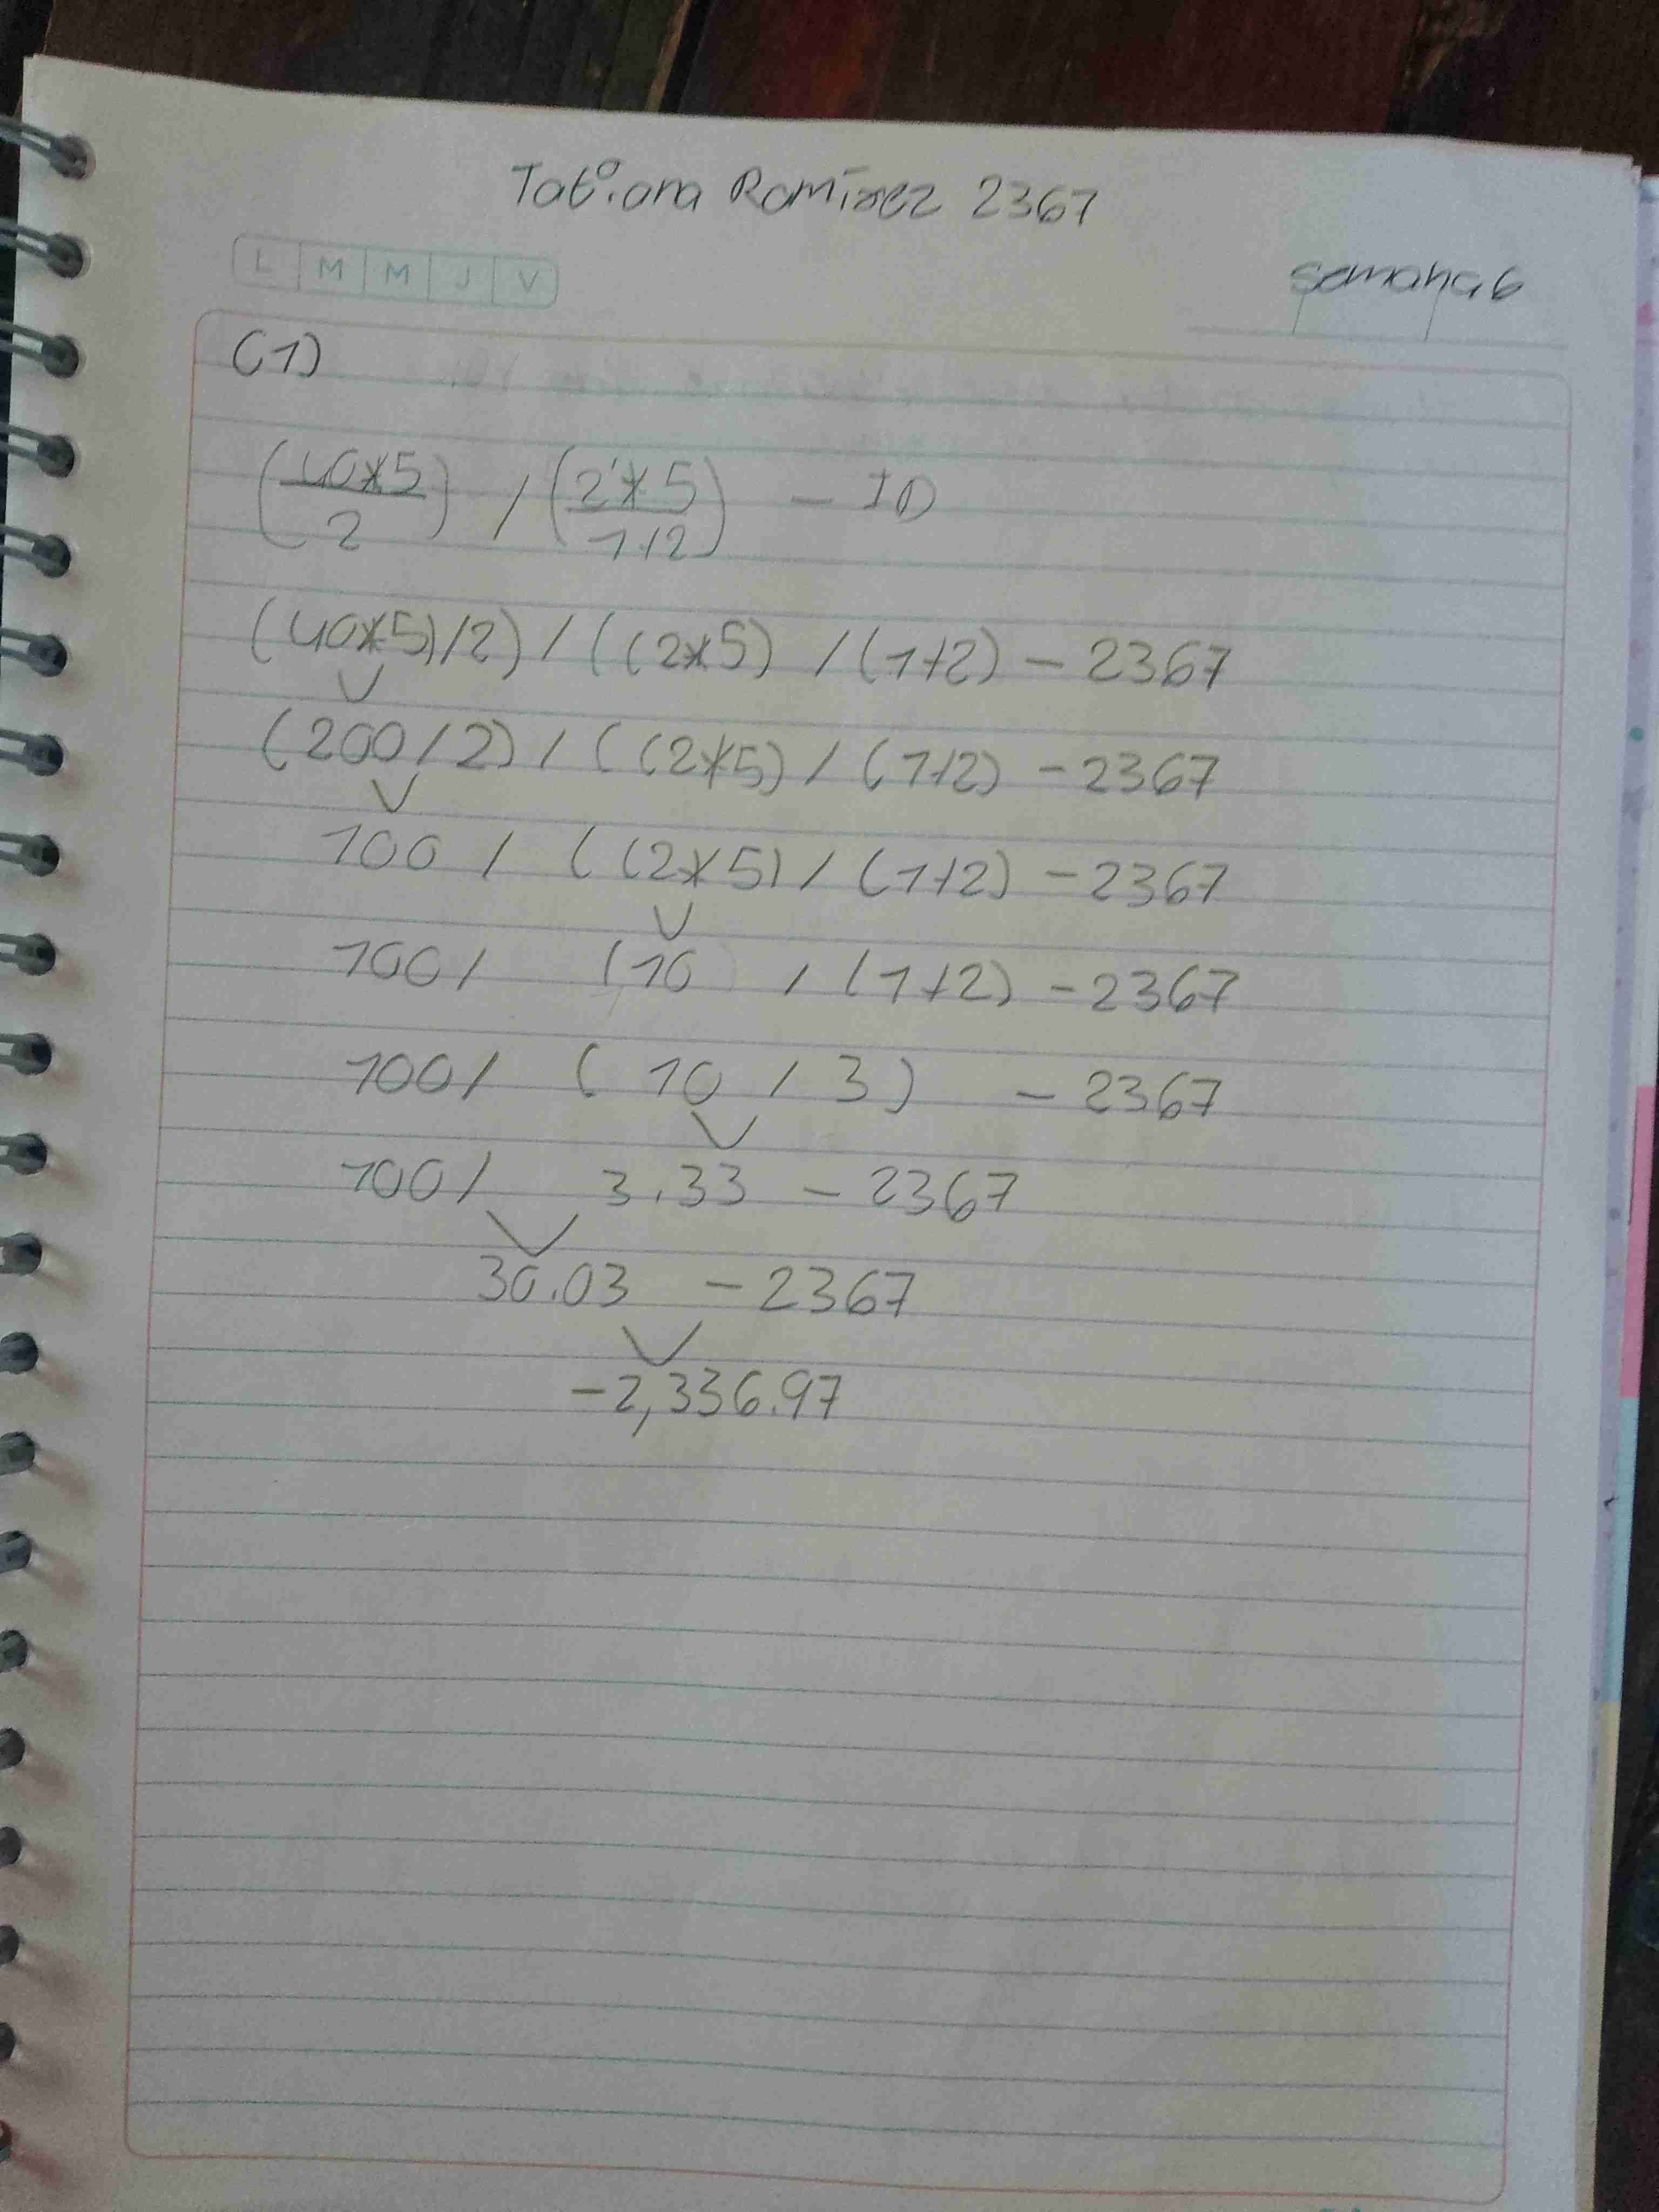 Tatiana Ramírez 2367
L M M J V
semana 6
(1)
(40*5/2) / (2*5/1+2) - ID
(40*5)/2) / ((2*5) / (1+2) - 2367
(200/2) / ((2*5) / (1+2) - 2367
100 / ((2*5) / (1+2) - 2367
100 / (10 / (1+2) - 2367
100 / (10 / 3) - 2367
100 / 3.33 - 2367
30.03 - 2367
-2,336.97